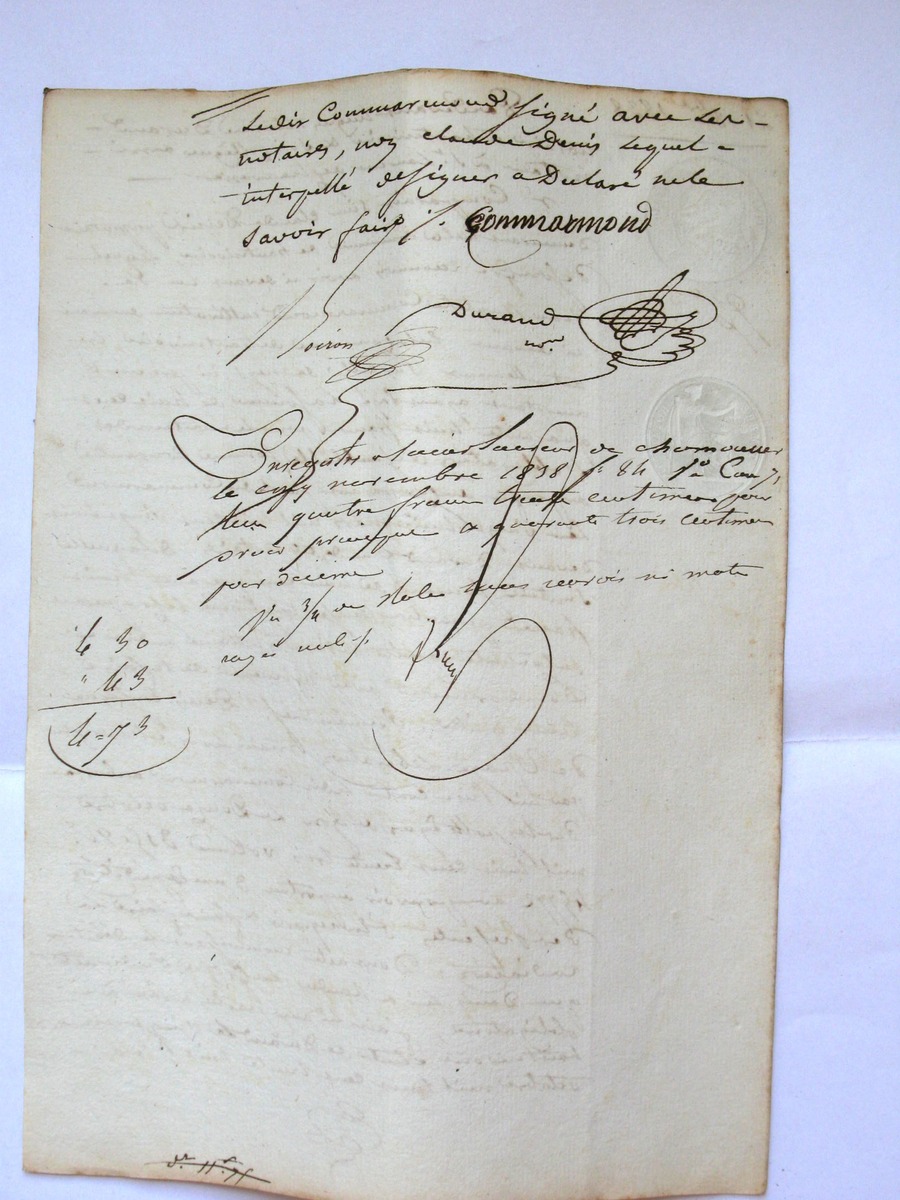 Ledit Commarmond signé avec les
notaires, non claude Denis lequel
interpellé de signer a Declaré ne le
savoir faire /. Commarmond
Durand
noire
Voiron
Enregistré à
le cinq novembre 1838 f° 84
quatre francs trente centimes pour
droit principal et quarante trois centimes
pour décime
renvois ni mots
rayés nuls /.
4 30
" 43
4 = 73